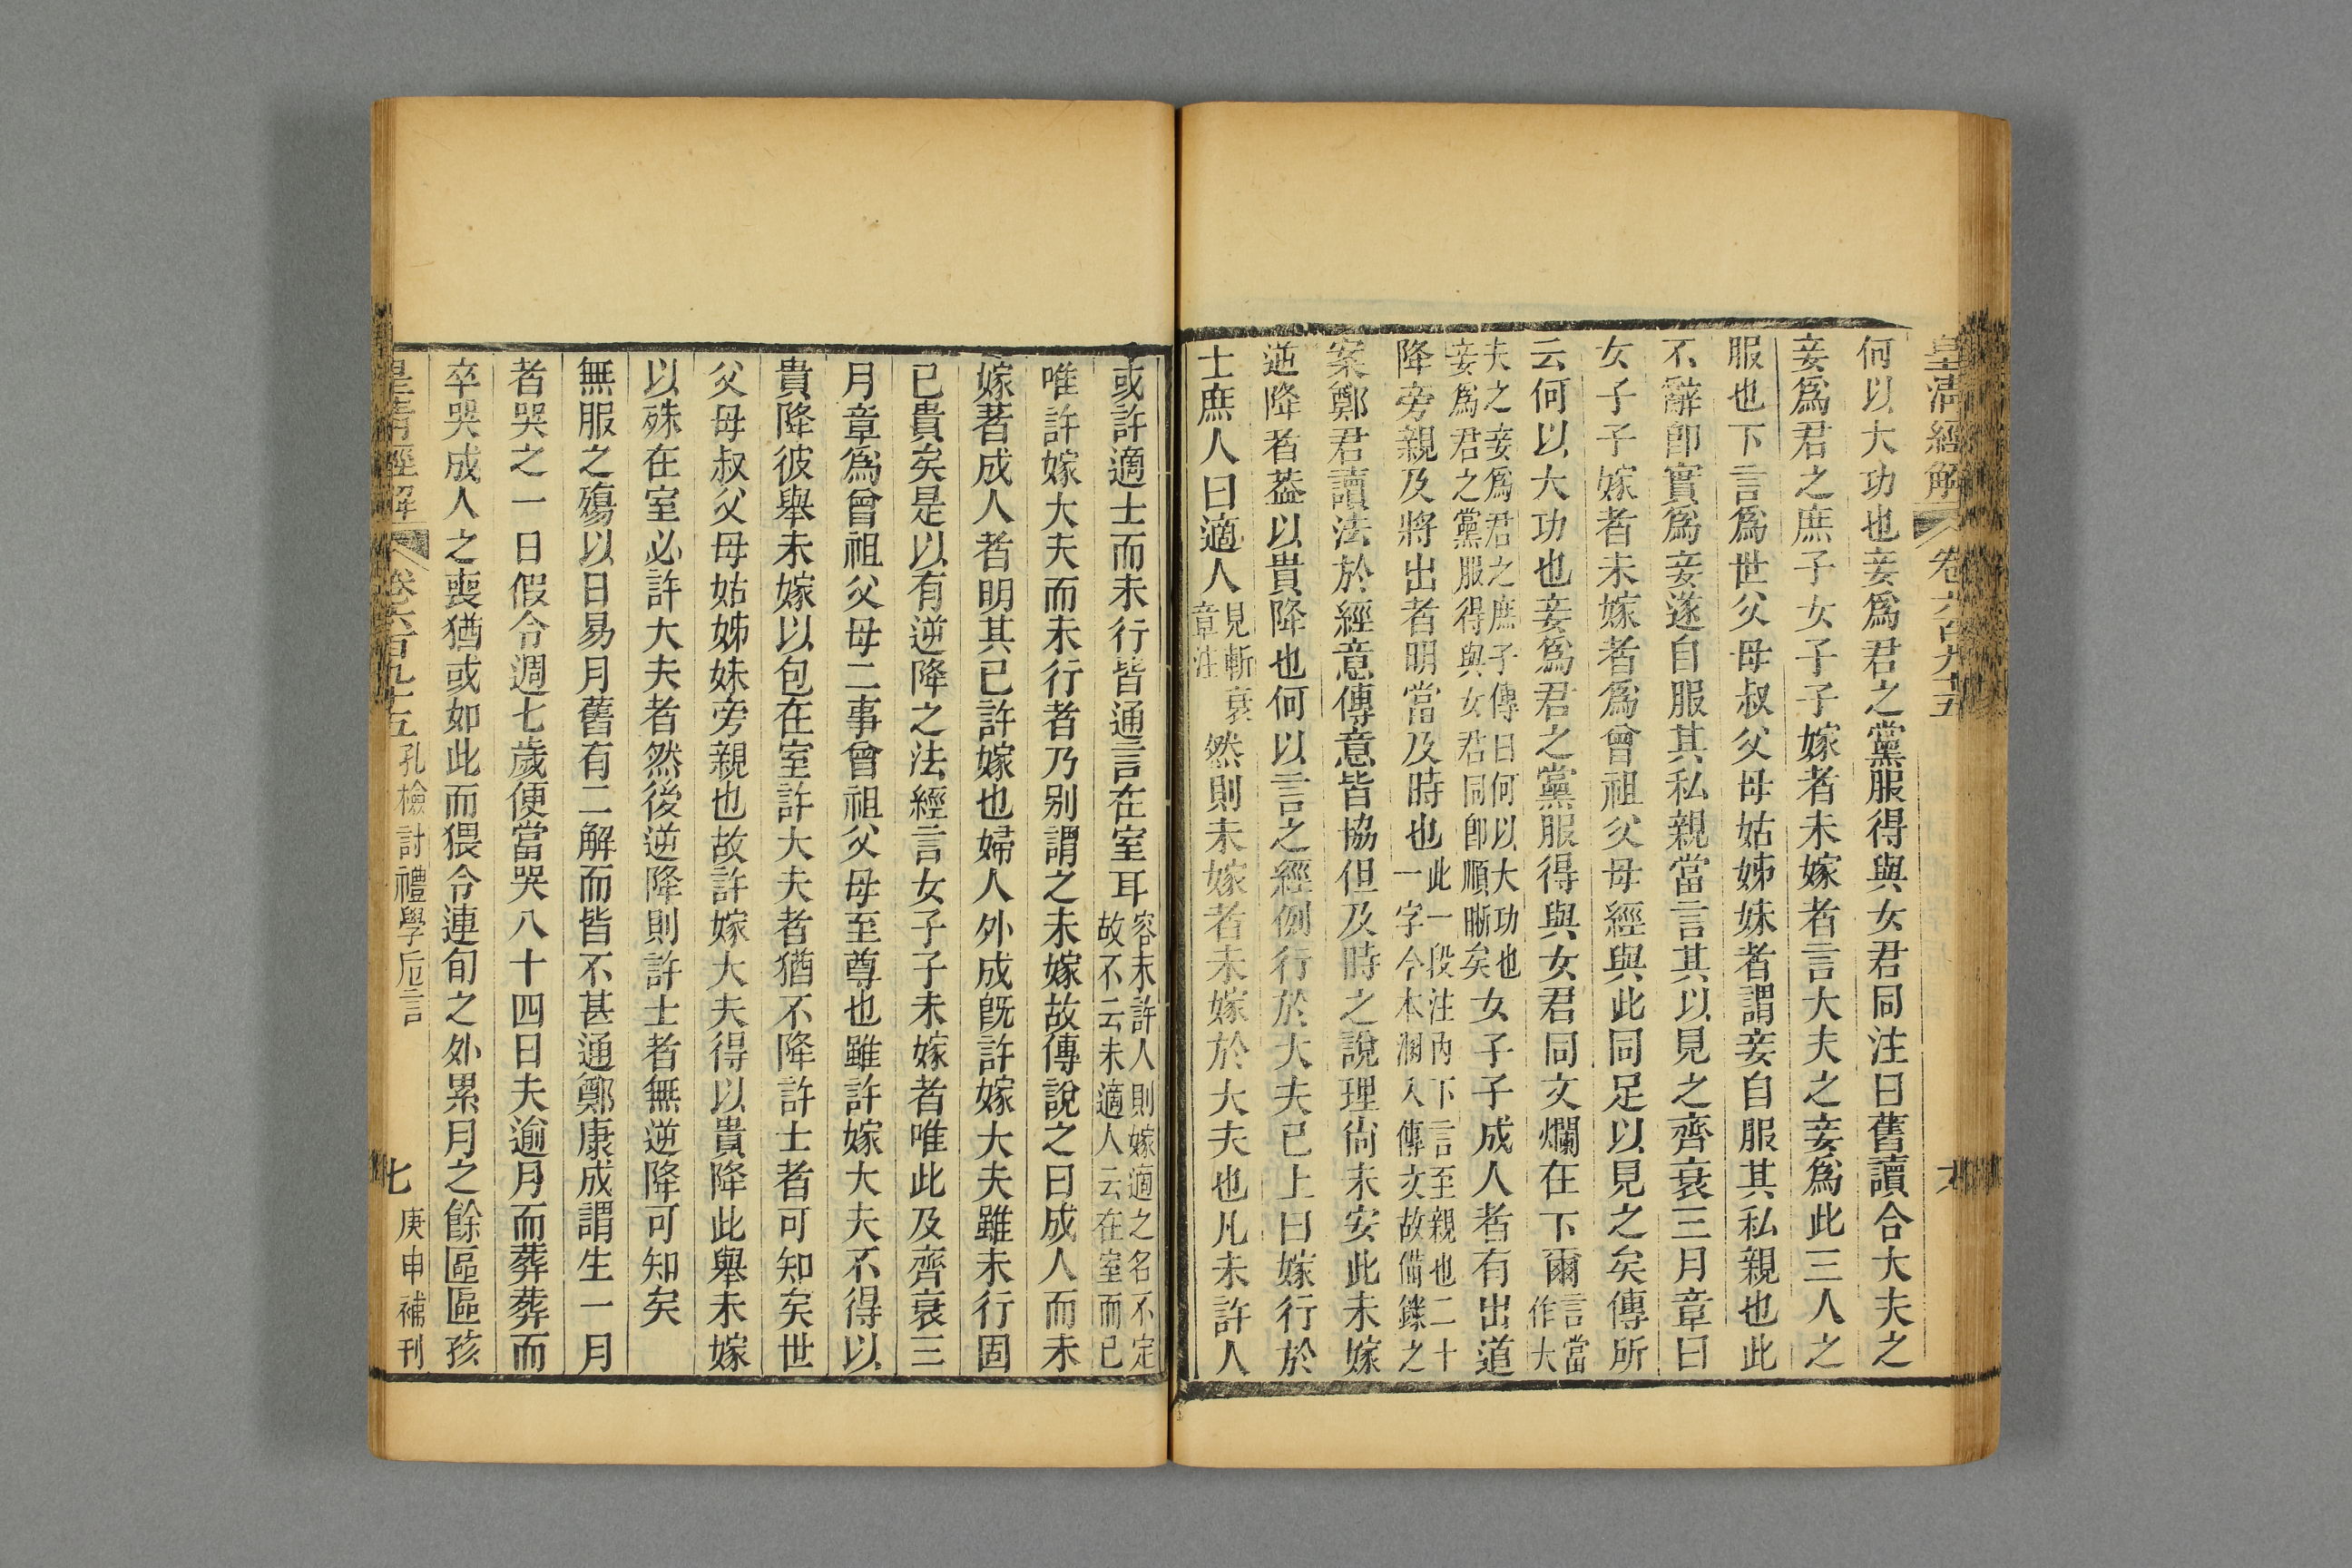 皇清經解 卷六百九十五 六
何以大功也妾爲君之黨服得與女君同注曰舊讀合大夫之
妾爲君之庶子女子子嫁者未嫁者言大夫之妾爲此三人之
服也下言爲世父母叔父母姑姊妹者謂妾自服其私親也此
不辭卽實爲妾遂自服其私親當言其以見之齊衰三月章曰
女子子嫁者未嫁者爲曾祖父母經與此同足以見之矣傳所
云何以大功也妾爲君之黨服得與女君同文爛在下爾言當作大
夫之妾爲君之庶子傳曰何以大功也妾爲君之黨服得與女君同卽順晰矣女子子成人者有出道
降旁親及將出者明當及時也此一段注內下言至親也二十一字今本溷入傳文故備錄之
案鄭君讀法於經意傳意皆協但及時之說理尙未安此未嫁
逆降者葢以貴降也何以言之經例行於大夫已上曰嫁行於
士庶人曰適人見斬衰章注然則未嫁者未嫁於大夫也凡未許人
或許適士而未行皆通言在室耳容未許人則嫁適之名不定故不云未適人云在室而已
唯許嫁大夫而未行者乃別謂之未嫁故傳說之曰成人而未
嫁著成人者明其已許嫁也婦人外成旣許嫁大夫雖未行固
已貴矣是以有逆降之法經言女子子未嫁者唯此及齊衰三
月章爲曾祖父母二事曾祖父母至尊也雖許嫁大夫不得以
貴降彼舉未嫁以包在室許大夫者猶不降許士者可知矣世
父母叔父母姑姊妹旁親也故許嫁大夫得以貴降此舉未嫁
以殊在室必許大夫者然後逆降則許士者無逆降可知矣
無服之殤以日易月舊有二解而皆不甚通鄭康成謂生一月
者哭之一日假令週七歲便當哭八十四日夫逾月而葬葬而
卒哭成人之喪猶或如此而猥令連旬之外累月之餘區區孩
皇清經解 卷六百九十五 孔檢討禮學卮言 七 庚申補刊